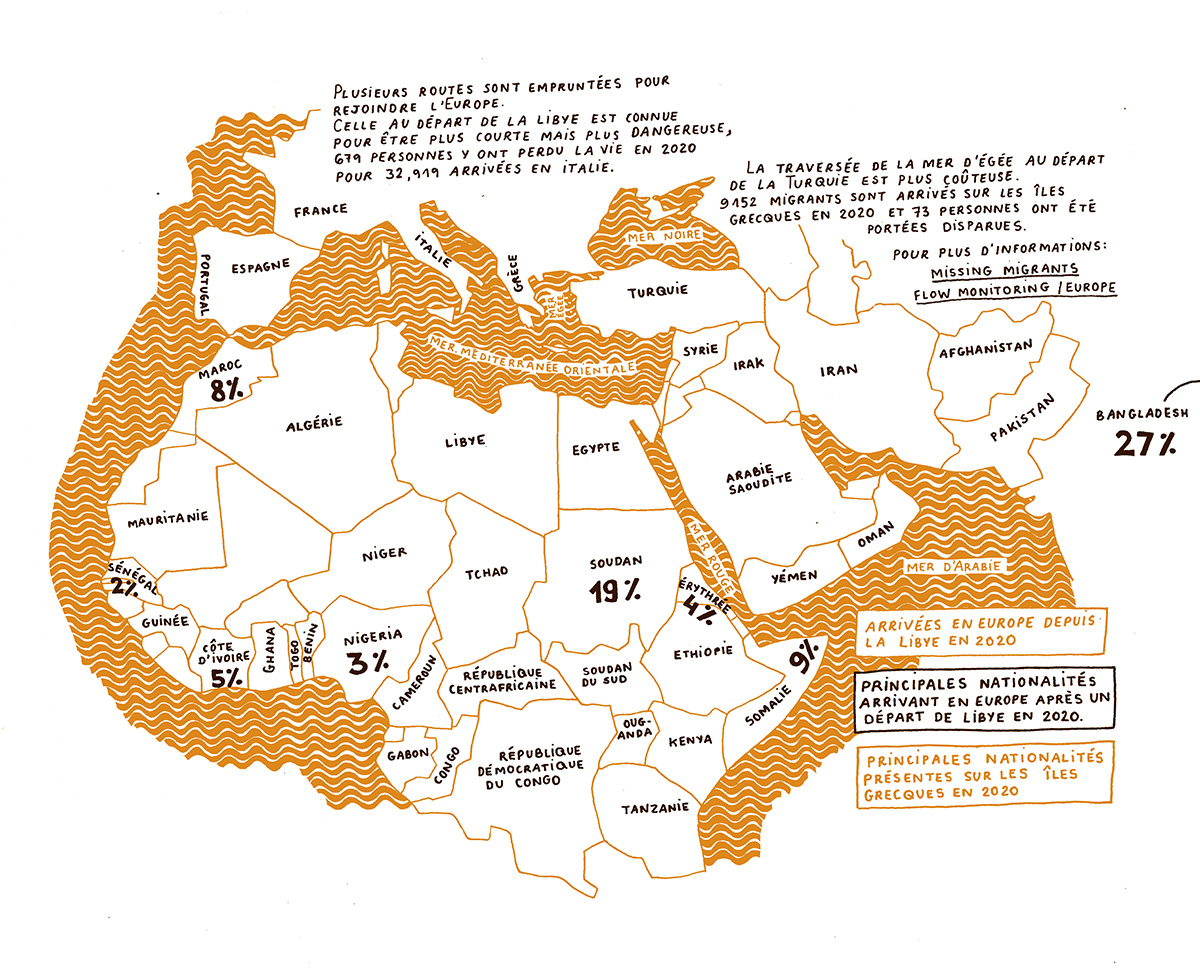 PLUSIEURS ROUTES SONT EMPRUNTÉES POUR
REJOINDRE L'EUROPE.
CELLE AU DÉPART DE LA LIBYE EST CONNUE
POUR ÊTRE PLUS COURTE MAIS PLUS DANGEREUSE,
679 PERSONNES Y ONT PERDU LA VIE EN 2020
POUR 32,919 ARRIVÉES EN ITALIE.
LA TRAVERSÉE DE LA MER D'ÉGÉE AU DÉPART
DE LA TURQUIE EST PLUS COÛTEUSE.
9152 MIGRANTS SONT ARRIVÉS SUR LES ÎLES
GRECQUES EN 2020 ET 73 PERSONNES ONT ÉTÉ
PORTÉES DISPARUES.
POUR PLUS D'INFORMATIONS:
MISSING MIGRANTS
FLOW MONITORING / EUROPE
FRANCE
ITALIE
MER NOIRE
PORTUGAL
ESPAGNE
GRÈCE
MER
ÉGÉE
TURQUIE
MER MÉDITERRANÉE ORIENTALE
SYRIE
IRAK
IRAN
AFGHANISTAN
PAKISTAN
BANGLADESH
27%
MAROC
8%
ALGÉRIE
LIBYE
EGYPTE
ARABIE
SAOUDITE
MAURITANIE
NIGER
TCHAD
SOUDAN
19%
MER ROUGE
OMAN
YÉMEN
MER D'ARABIE
SÉNÉGAL
2%
ÉRYTHRÉE
4%
GUINÉE
CÔTE
D'IVOIRE
5%
GHANA
TOGO
BENIN
NIGERIA
3%
CAMEROUN
RÉPUBLIQUE
CENTRAFRICAINE
SOUDAN
DU SUD
ETHIOPIE
SOMALIE
9%
GABON
CONGO
RÉPUBLIQUE
DÉMOCRATIQUE
DU CONGO
OUG-
ANDA
KENYA
TANZANIE
ARRIVÉES EN EUROPE DEPUIS
LA LIBYE EN 2020
PRINCIPALES NATIONALITÉS
ARRIVANT EN EUROPE APRÈS UN
DÉPART DE LIBYE EN 2020.
PRINCIPALES NATIONALITÉS
PRÉSENTES SUR LES ÎLES
GRECQUES EN 2020